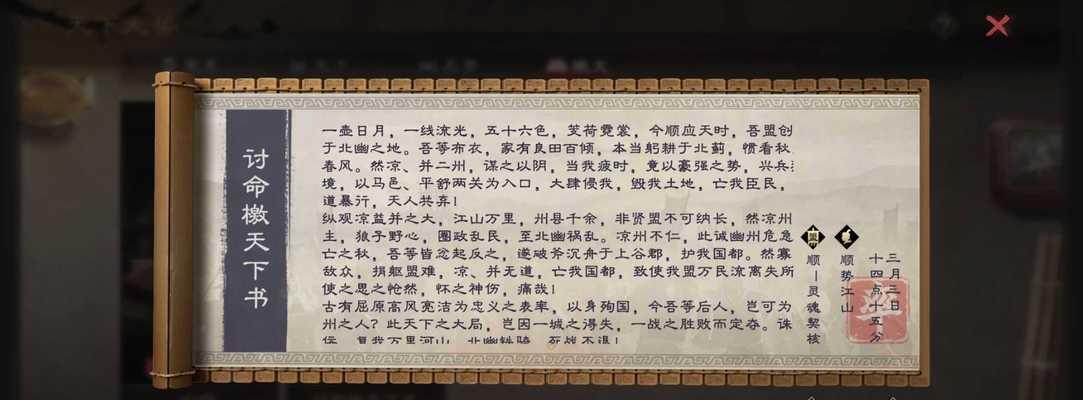 讨命檄天下书
一壶日月，一线流光，五十六色，芰荷霓裳，今顺应天时，吾盟创
于北幽之地。吾等布衣，家有良田百倾，本当躬耕于北蓟，惯看秋
春风。然凉、并二州，谋之以阴，当我疲时，竟以豪强之势，兴兵
境，以马邑、平舒两关为入口，大肆侵我，毁我土地，亡我臣民，
道暴行，天人共弃！
纵观凉益并之大，江山万里，州县千余，非贤盟不可纳长，然凉州
主，狼子野心，圈政乱民，至北幽祸乱。凉州不仁，此诚幽州危急
亡之秋，吾等皆忿起反之，遂破斧沉舟于上谷郡，护我国都。然寡
敌众，捐躯盟难，凉、并无道，亡我国都，致使我盟万民流离失所
使之思之怆然，怀之神伤，痛哉！
古有屈原高风亮洁为忠义之表率，以身殉国，今吾等后人，岂可为
州之人？此天下之大局，岂因一城之得失，一战之胜败而定夺。诛
复我万里河山，北幽铁骑，死战不退！
盟
顺丨灵魂契核
顺势江山
三月三日
十四点十五分